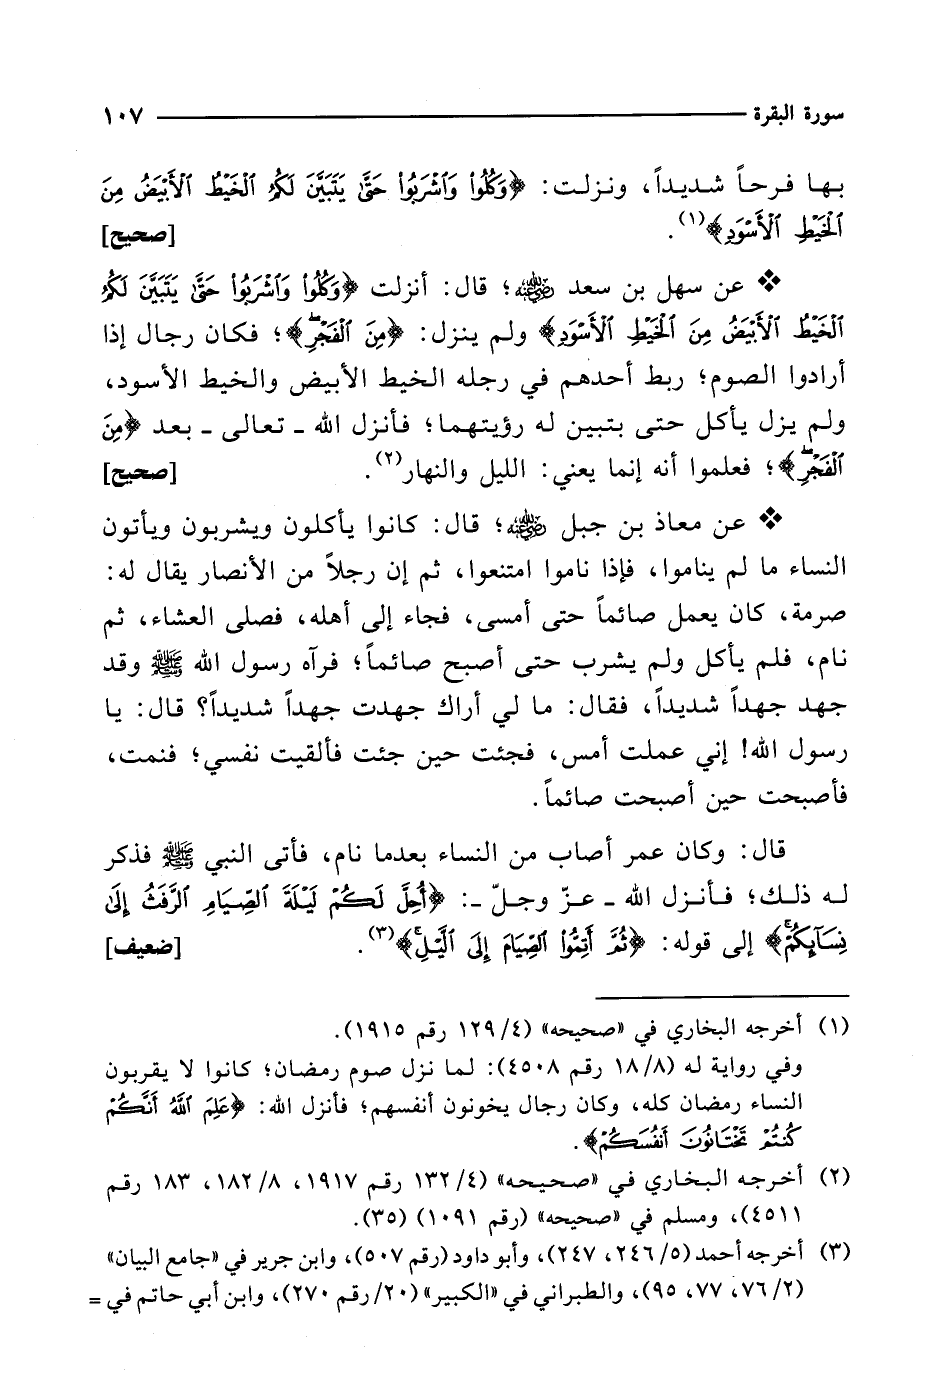 سورة البقرة ١٠٧
بها فرحاً شديداً، ونزلت: ﴿وَكُلُوا۟ وَٱشْرَبُوا۟ حَتَّىٰ يَتَبَيَّنَ لَكُمُ ٱلْخَيْطُ ٱلْأَبْيَضُ مِنَ
ٱلْخَيْطِ ٱلْأَسْوَدِ﴾(١). [صحيح]
❖ عن سهل بن سعد رضي الله عنه؛ قال: أنزلت ﴿وَكُلُوا۟ وَٱشْرَبُوا۟ حَتَّىٰ يَتَبَيَّنَ لَكُمُ
ٱلْخَيْطُ ٱلْأَبْيَضُ مِنَ ٱلْخَيْطِ ٱلْأَسْوَدِ﴾ ولم ينزل: ﴿مِنَ ٱلْفَجْرِۖ﴾؛ فكان رجال إذا
أرادوا الصوم؛ ربط أحدهم في رجله الخيط الأبيض والخيط الأسود،
ولم يزل يأكل حتى يتبين له رؤيتهما؛ فأنزل الله ـ تعالى ـ بعد ﴿مِنَ
ٱلْفَجْرِۖ﴾؛ فعلموا أنه إنما يعني: الليل والنهار(٢). [صحيح]
❖ عن معاذ بن جبل رضي الله عنه؛ قال: كانوا يأكلون ويشربون ويأتون
النساء ما لم يناموا، فإذا ناموا امتنعوا، ثم إن رجلاً من الأنصار يقال له:
صرمة، كان يعمل صائماً حتى أمسى، فجاء إلى أهله، فصلى العشاء، ثم
نام، فلم يأكل ولم يشرب حتى أصبح صائماً؛ فرآه رسول الله ﷺ وقد
جهد جهداً شديداً، فقال: ما لي أراك جهدت جهداً شديداً؟ قال: يا
رسول الله! إني عملت أمس، فجئت حين جئت فألقيت نفسي؛ فنمت،
فأصبحت حين أصبحت صائماً.
قال: وكان عمر أصاب من النساء بعدما نام، فأتى النبي ﷺ فذكر
له ذلك؛ فأنزل الله ـ عزّ وجلّ ـ: ﴿أُحِلَّ لَكُمْ لَيْلَةَ ٱلصِّيَامِ ٱلرَّفَثُ إِلَىٰ
نِسَآئِكُمْۚ﴾ إلى قوله: ﴿ثُمَّ أَتِمُّوا۟ ٱلصِّيَامَ إِلَى ٱلَّيْلِۚ﴾(٣). [ضعيف]
(١) أخرجه البخاري في «صحيحه» (٤/ ١٢٩ رقم ١٩١٥).
وفي رواية له (٨/ ١٨ رقم ٤٥٠٨): لما نزل صوم رمضان؛ كانوا لا يقربون
النساء رمضان كله، وكان رجال يخونون أنفسهم؛ فأنزل الله: ﴿عَلِمَ ٱللَّهُ أَنَّكُمْ
كُنتُمْ تَخْتَانُونَ أَنفُسَكُمْ﴾.
(٢) أخرجه البخاري في «صحيحه» (٤/ ١٣٢ رقم ١٩١٧، ٨/ ١٨٢، ١٨٣ رقم
٤٥١١)، ومسلم في «صحيحه» (رقم ١٠٩١) (٣٥).
(٣) أخرجه أحمد (٥/ ٢٤٦، ٢٤٧)، وأبو داود (رقم ٥٠٧)، وابن جرير في «جامع البيان»
(٢/ ٧٦، ٧٧، ٩٥)، والطبراني في «الكبير» (٢٠/ رقم ٢٧٠)، وابن أبي حاتم في =